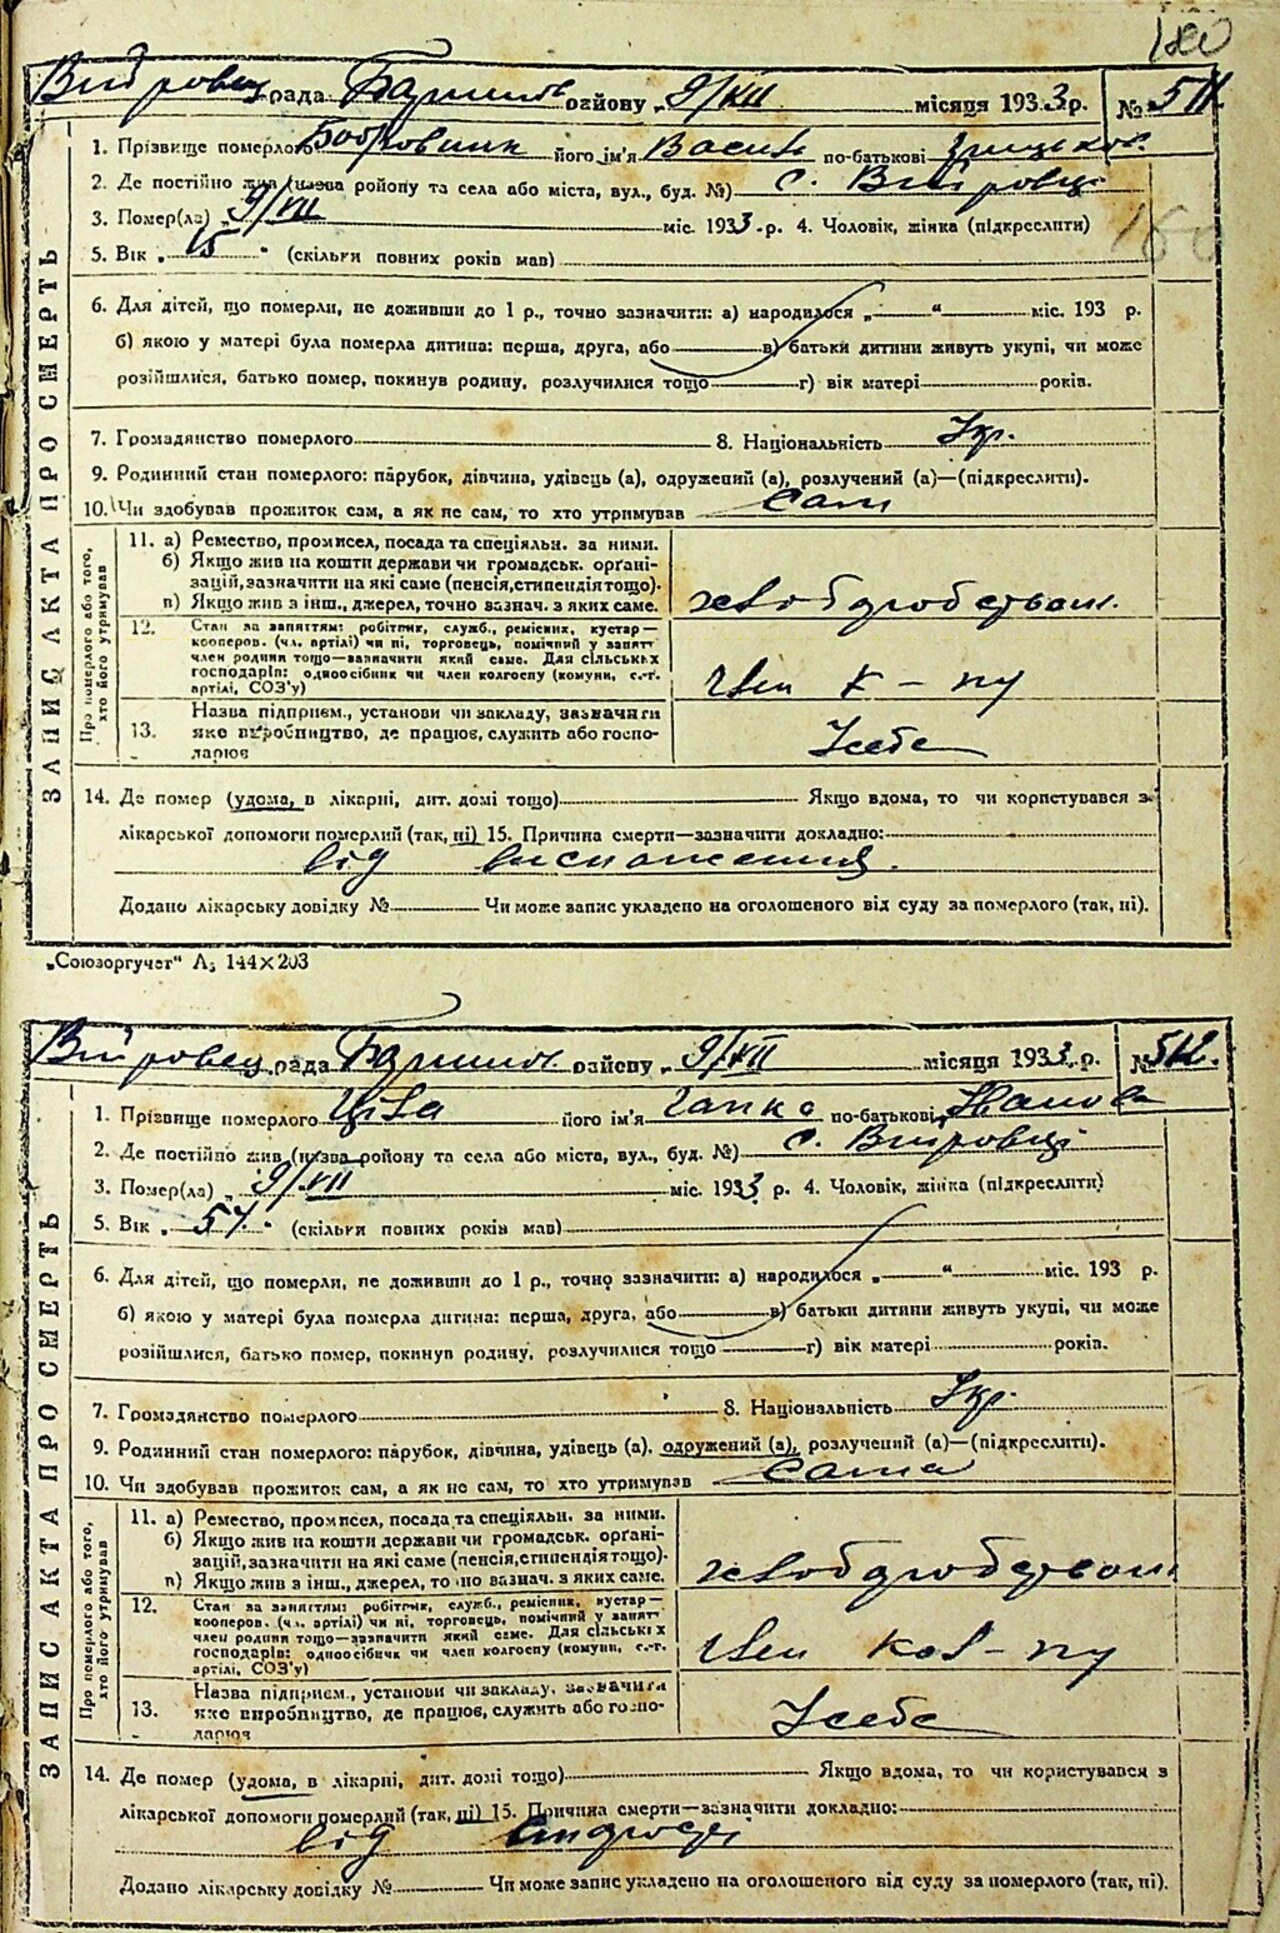 180
Війтовец рада Баришів району „9/XII місяця 1933 р. № 511.
1. Прізвище померлого Бобровник його ім'я Василь по-батькові Грицьков.
2. Де постійно жив (назва району та села або міста, вул., буд. №) с. Війтовці
3. Помер(ла) „9/VII міс. 1933 р. 4. Чоловік, жінка (підкреслити)
5. Вік „15“ (скільки повних років мав)
6. Для дітей, що померли, не доживши до 1 р., точно зазначити: а) народилося „ “ міс. 193 р.
б) якою у матері була померла дитина: перша, друга, або в) батьки дитини живуть укупі, чи може
розійшлися, батько помер, покинув родину, розлучилися тощо г) вік матері років.
7. Громадянство померлого 8. Національність Укр.
9. Родинний стан померлого: парубок, дівчина, удівець (а), одружений (а), розлучений (а)—(підкреслити).
10. Чи здобував прожиток сам, а як не сам, то хто утримував Сам
11. а) Ремество, промисел, посада та спеціяльн. за ними.
б) Якщо жив на кошти держави чи громадськ. орґані-
зацій, зазначити на які саме (пенсія, стипендія тощо).
в) Якщо жив з інш., джерел, точно зазнач. з яких саме.
хлібороб
12. Стан за заняттям: робітник, служб., ремісник, кустар—
кооперов. (чл. артілі) чи ні, торговець, помічний у занятт
член родини тощо—зазначити який саме. Для сільських
господарів: одноосібник чи член колгоспу (комуни, с.-г.
артілі, СОЗ'у)
Член к-пу
13. Назва підприєм., установи чи закладу, зазначити
яке виробництво, де працює, служить або госпо-
дарює
У себе
14. Де помер (удома, в лікарні, дит. домі тощо) Якщо вдома, то чи користувався з
лікарської допомоги померлий (так, ні) 15. Причина смерти—зазначити докладно:
від виснаження.
Додано лікарську довідку № Чи може запис укладено на оголошеного від суду за померлого (так, ні).
ЗАПИС АКТА ПРО СМЕРТЬ
Про померлого або того,
хто його утримував
„Союзоргучет“ А5 144×203
Війтовец рада Баришів району „9/XII місяця 1933 р. № 512.
1. Прізвище померлого його ім'я Гапка по-батькові Іванова
2. Де постійно жив (назва району та села або міста, вул., буд. №) с. Війтовці
3. Помер(ла) „9/VII міс. 1933 р. 4. Чоловік, жінка (підкреслити)
5. Вік „57“ (скільки повних років мав)
6. Для дітей, що померли, не доживши до 1 р., точно зазначити: а) народилося „ “ міс. 193 р.
б) якою у матері була померла дитина: перша, друга, або в) батьки дитини живуть укупі, чи може
розійшлися, батько помер, покинув родину, розлучилися тощо г) вік матері років.
7. Громадянство померлого 8. Національність Укр.
9. Родинний стан померлого: парубок, дівчина, удівець (а), одружений (а), розлучений (а)—(підкреслити).
10. Чи здобував прожиток сам, а як не сам, то хто утримував Сама
11. а) Ремество, промисел, посада та спеціяльн. за ними.
б) Якщо жив на кошти держави чи громадськ. орґані-
зацій, зазначити на які саме (пенсія, стипендія тощо).
в) Якщо жив з інш., джерел, точно зазнач. з яких саме.
12. Стан за заняттям: робітник, служб., ремісник, кустар—
кооперов. (чл. артілі) чи ні, торговець, помічний у занятт
член родини тощо—зазначити який саме. Для сільських
господарів: одноосібник чи член колгоспу (комуни, с.-г.
артілі, СОЗ'у)
Член кол-пу
13. Назва підприєм., установи чи закладу, зазначити
яке виробництво, де працює, служить або госпо-
дарює
У себе
14. Де помер (удома, в лікарні, дит. домі тощо) Якщо вдома, то чи користувався з
лікарської допомоги померлий (так, ні) 15. Причина смерти—зазначити докладно:
від
Додано лікарську довідку № Чи може запис укладено на оголошеного від суду за померлого (так, ні).
ЗАПИС АКТА ПРО СМЕРТЬ
Про померлого або того,
хто його утримував